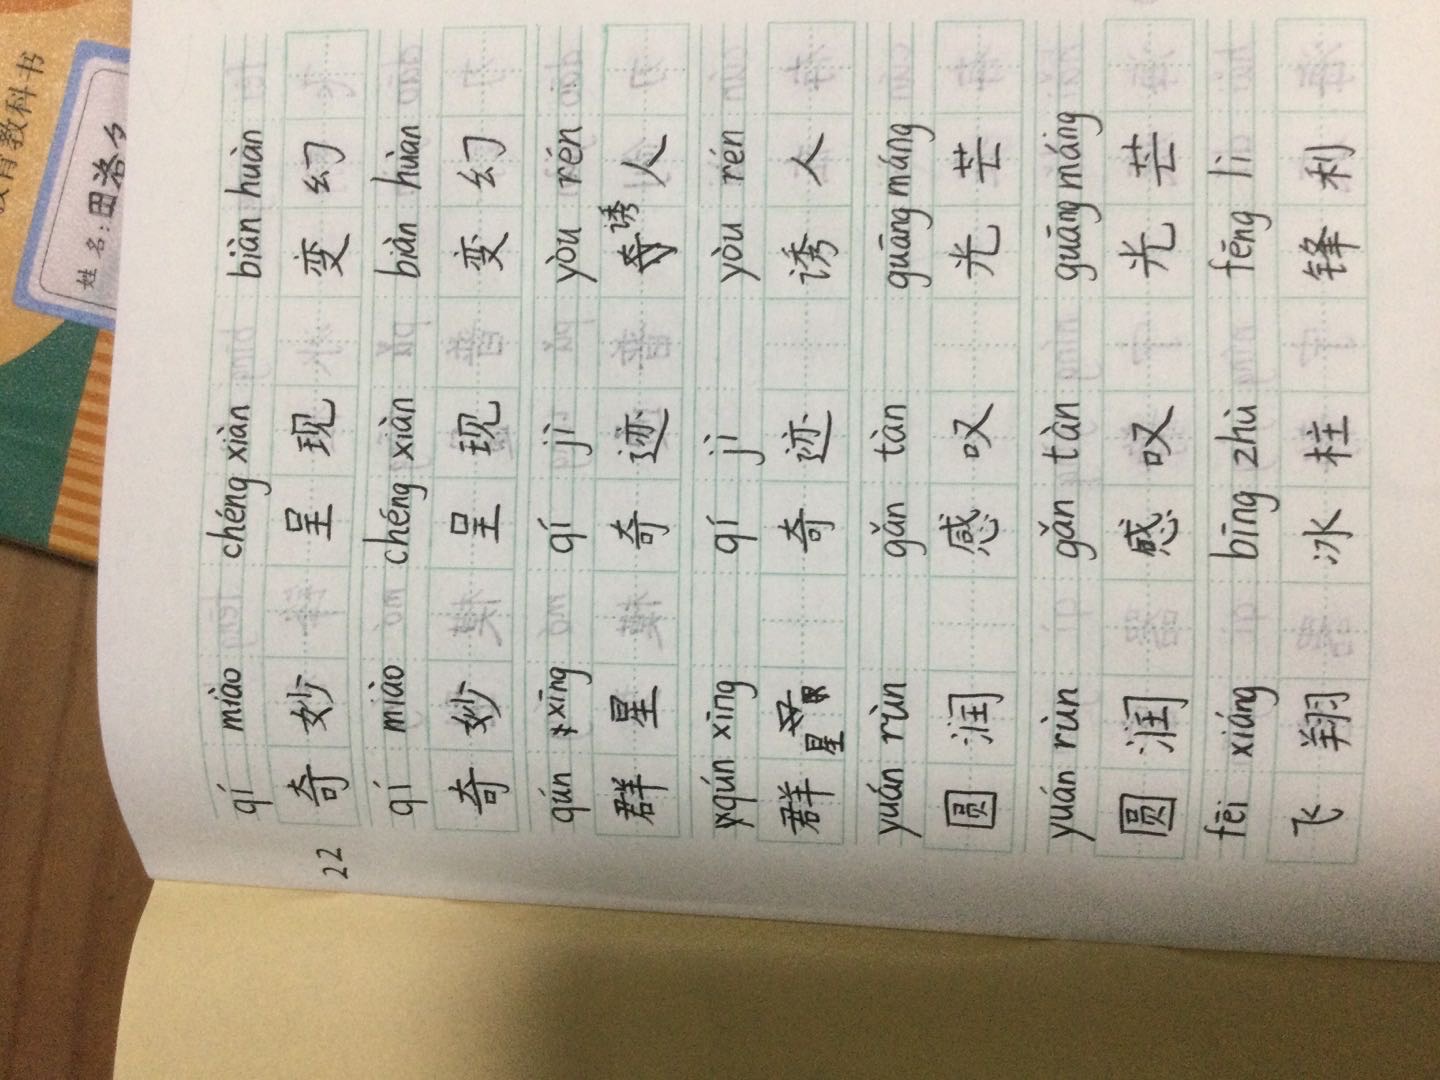 教科书
姓 名:田洛
22
qí miào chéng xiàn biàn huàn
奇妙 呈现 变幻
qí miào chéng xiàn biàn huàn
奇妙 呈现 变幻
qún xīng qí jì yòu rén
群星 奇迹 诱人
qún xīng qí jì yòu rén
群星 奇迹 诱人
yuán rùn gǎn tàn guāng máng
圆润 感叹 光芒
yuán rùn gǎn tàn guāng máng
圆润 感叹 光芒
fēi xiáng bīng zhù fēng lì
飞翔 冰柱 锋利